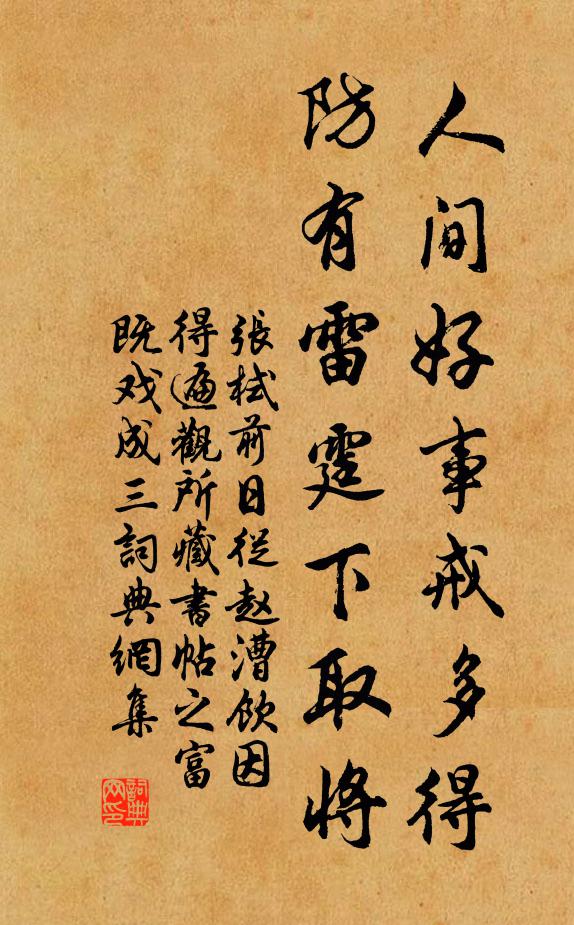 人间好事戒多得
防有雷霆下取将
張栻前日従赵漕饮因
得遍觀所藏書帖之富
既戏成三詞典網集
詞典网印